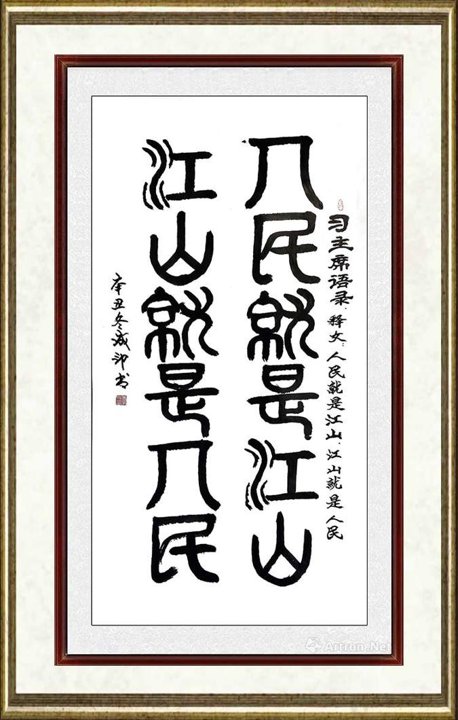 习主席语录：释文：人民就是江山，江山就是人民
人民就是江山
江山就是人民
辛丑冬成印书
Artron.Net